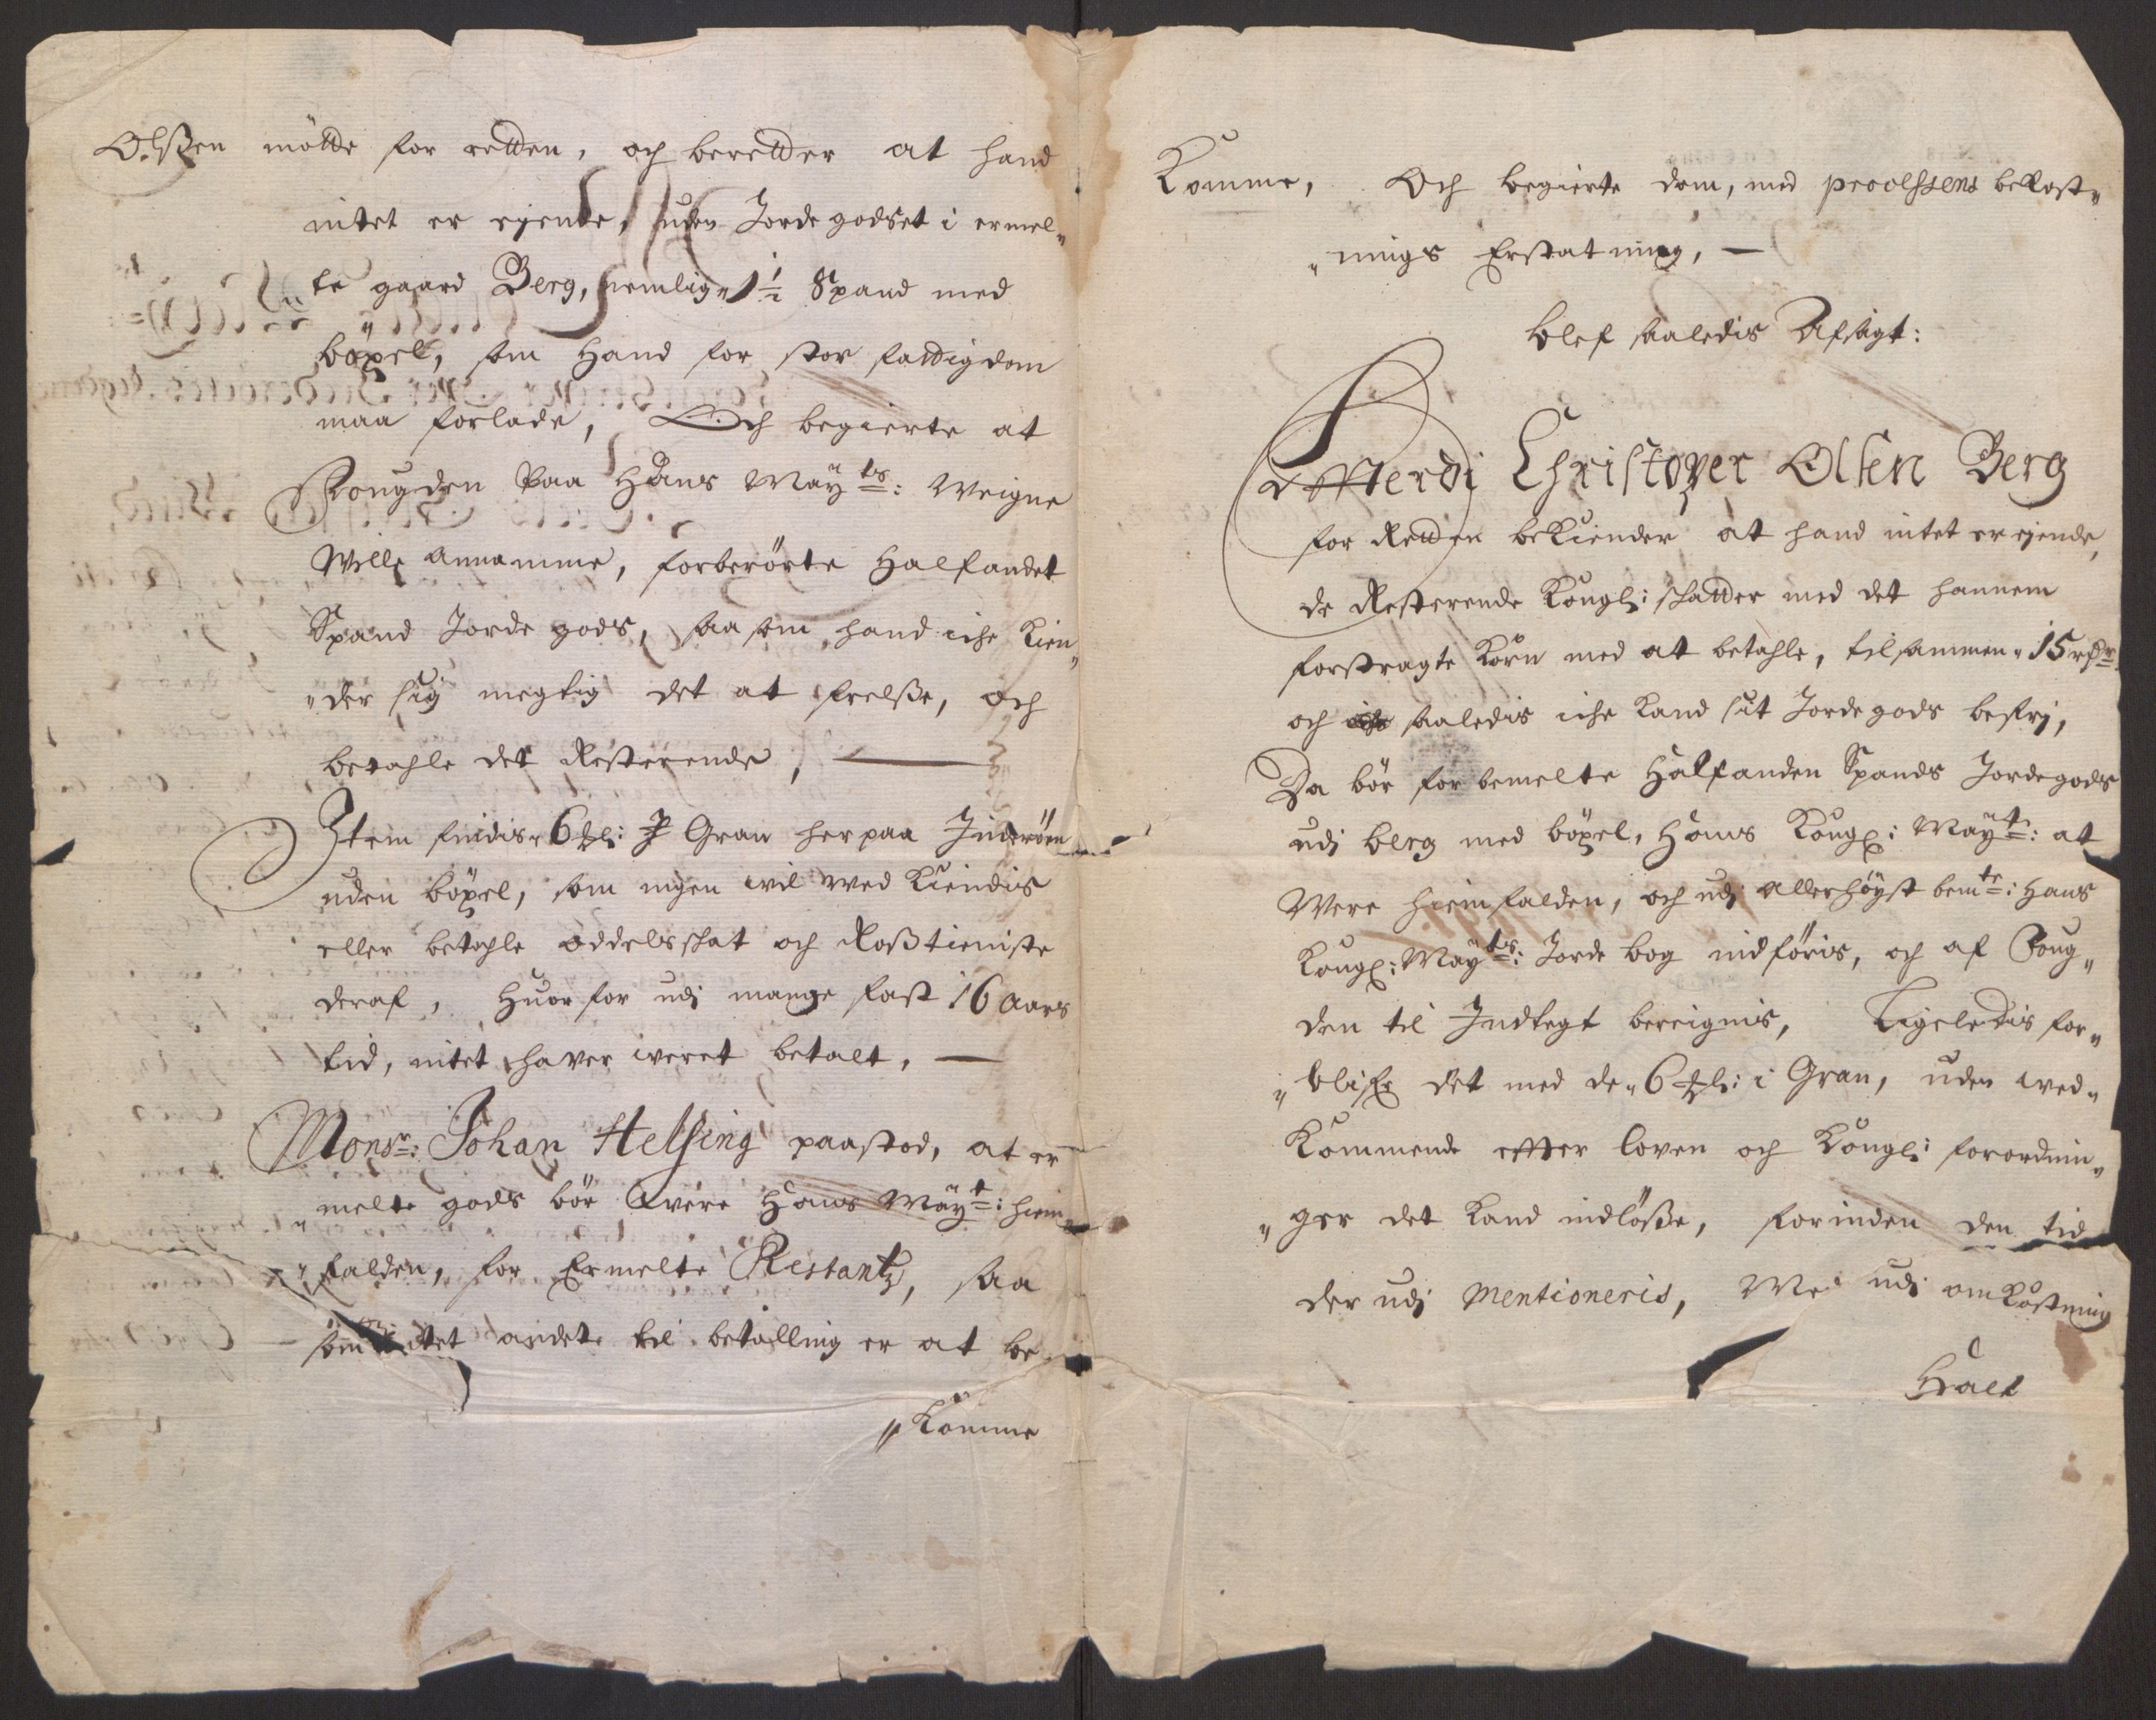 Olßen mötte for retten, och beretter at hand
intet er ejende, uden Jorde godset i ermel„
te gaard Berg, nemlig„ 1½ Spand med
böxel, som Hand for stor fattigdom
maa forlade, Och begierte at
Fougden Paa Hans May<sup>ts</sup>: Weigne
Wille annamme, forberörte Halfandet
Spand Jorde gods, saasom hand iche kien„
„der sig megtig det at frelße, och
betahle det Resterende,
Item findis„ 6 : J Gran her paa Inderöen
uden böxel, som ingen wil wed kiendis
eller betahle oddelsschat och Roßtieniste
deraf, Huorfor udj mange fast 16 aars
tid, intet haver weret betalt. —
Mons<sup>r</sup>: Johan Helsing paastod, at er
„melte gods bör were Hans May<sup>t</sup>: hiem„
„falden, for Ermelte Restantz, saa
som andet til betalling er at be„
„komme
Komme, Och begierte dom, med processens bekost„
„nings Erstatning, —
Blef saaledis Afsagt:
Effterdj Christopher Olsen Berg
for Retten bekiender at hand intet er ejende,
de Resterende Kongl: schatter med det hannem
forstragte korn med at betahle, tilsammen„ 15 rdr
och saaledis iche kand sit Jordegods befrj,
Da bör for bemelte Halfanden Spands Jordegods
udj Berg med böxel, Hans Kongl: May<sup>t</sup>: at
Were hiemfalden, och udj allerhöyst bem<sup>te</sup>: Hans
Kongl: May<sup>ts</sup>: Jorde bog indföris, och af Foug„
den til Indtegt bereignis, Ligeledis for„
„blifr det med de„ 6 : i Gran, uden wed„
Kommende effter loven och Kongl: forordnin„
„ger det kand indlöße, forinden den tid
der udj Mentioneris, We udj omkostning
Huad